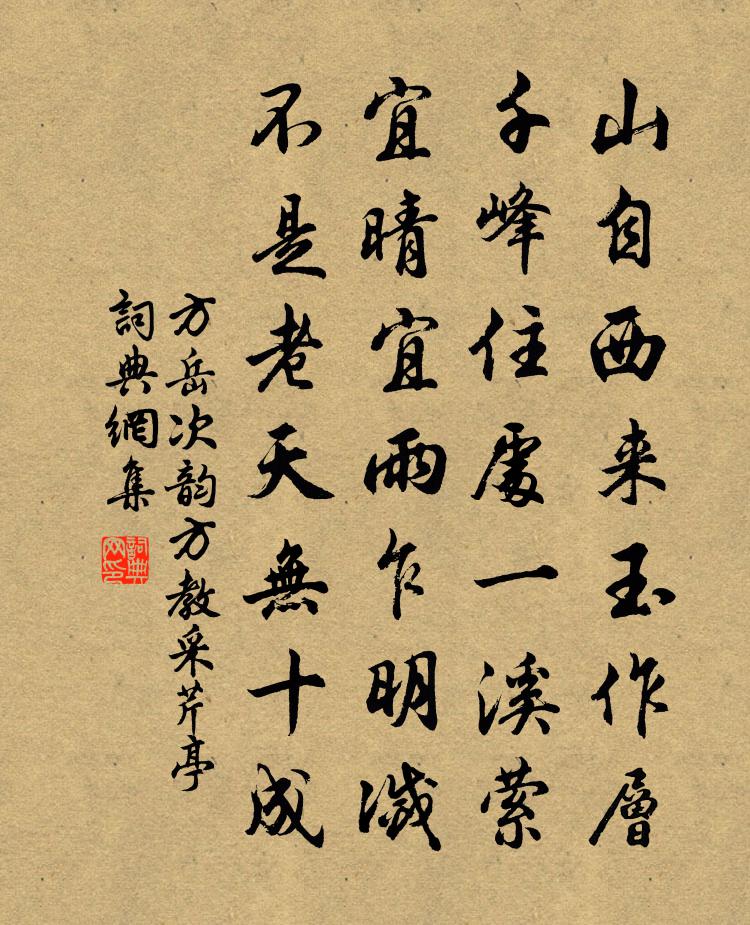 山自西来玉作層
千峰住處一溪萦
宜晴宜雨乍明滅
不是老天無十成
方岳次韵方教采芹亭
詞典網集
詞典网印